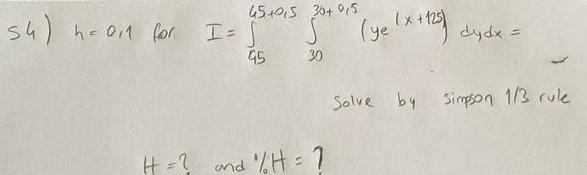 S4) h = 0,1 for I = ∫_{45}^{45+0,5} ∫_{30}^{30+0,5} (ye^{(x+125)}) dydx =
Solve by simpson 1/3 rule
H = ? and %H = ?